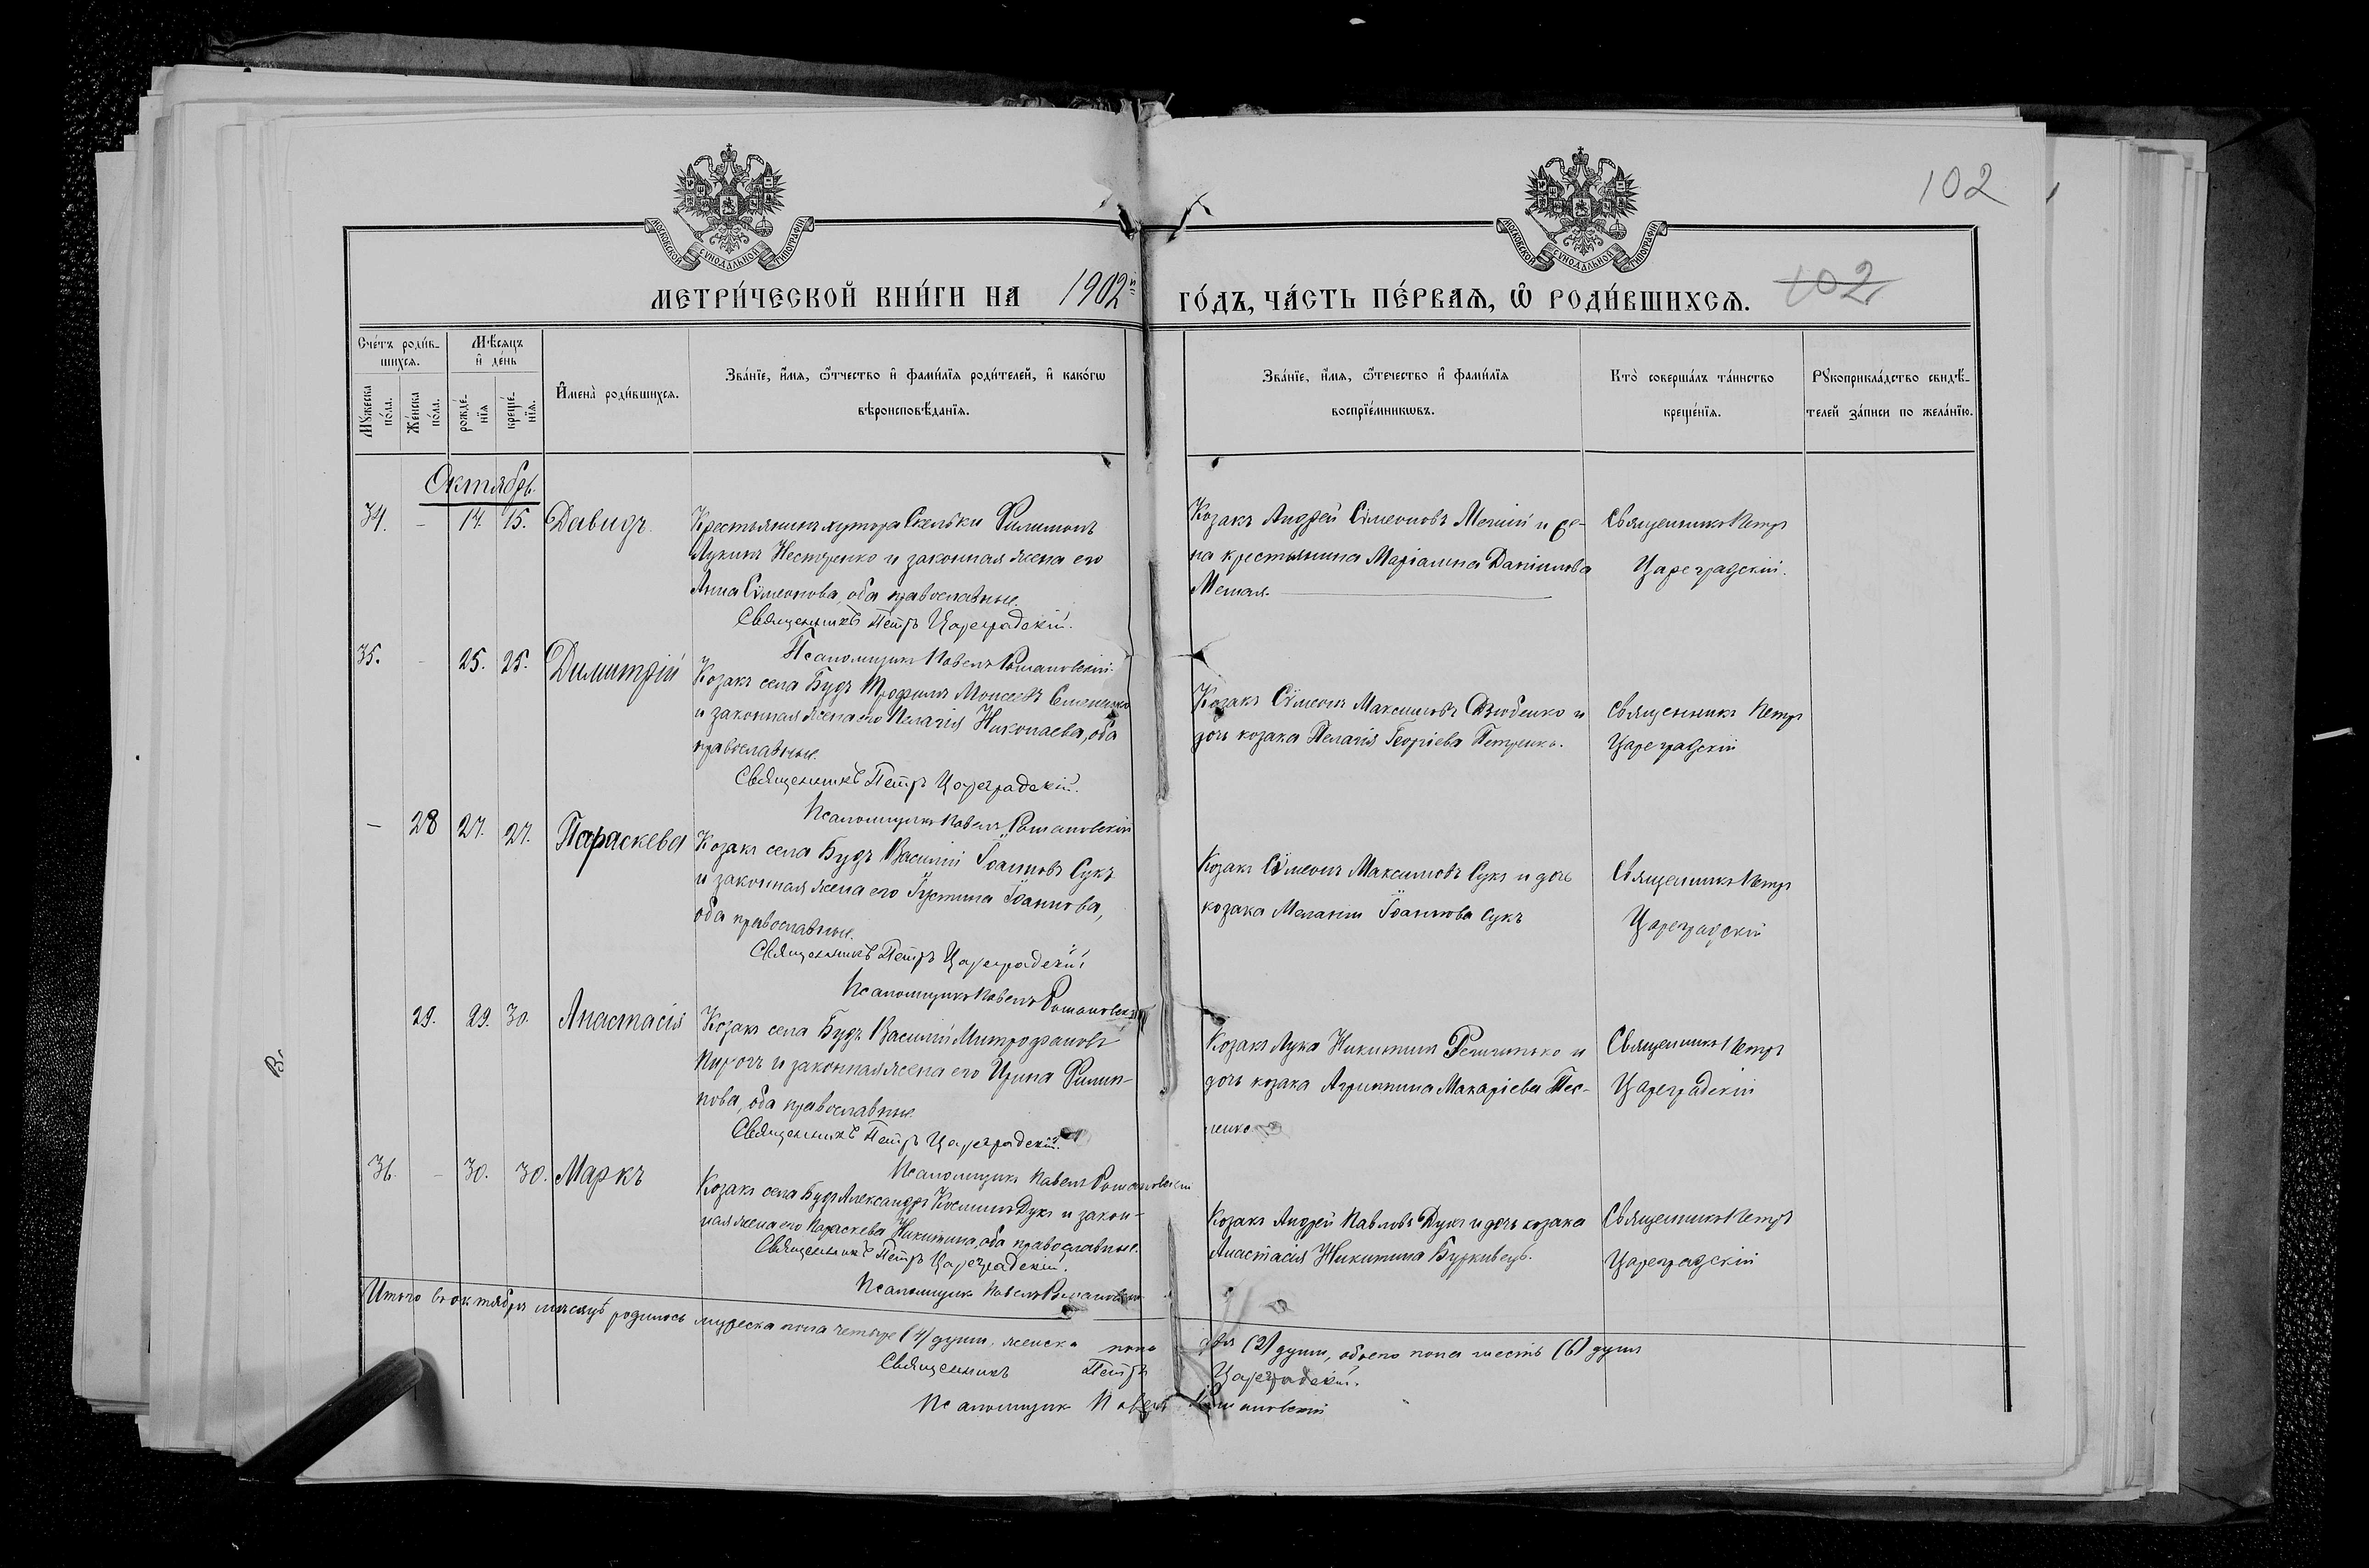 102
МОСКОВСКОЙ СѴНОДАЛЬНОЙ ТИПОГРАФІИ
МОСКОВСКОЙ СѴНОДАЛЬНОЙ ТИПОГРАФІИ
МЕТРИ́ЧЕСКОЙ КНИ́ГИ НА 1902й ГО́ДЪ, ЧА́СТЬ ПЕ́РВАѦ, Ѿ РОДИ́ВШИХСѦ. 102
Сче́тъ роди́в-
шихсѧ.
Мꙋ́жеска
по́ла.
Же́нска
по́ла.
Мѣ́сѧцъ
и҆ де́нь
рожде́-
нїѧ
креще́-
нїѧ.
И҆мена̀ роди́вшихсѧ.
Зва́нїе, и҆́мѧ, ѻ҆́тчество и҆ фами́лїѧ роди́телей, и҆ како́гѡ
вѣроисповѣ́данїѧ.
Зва́нїе, и҆́мѧ, ѻ҆́течество и҆ фами́лїѧ
воспрїе́мникѡвъ.
Кто̀ соверша́лъ та́инство
креще́нїѧ.
Рꙋкоприкла́дство свидѣ́-
телей за́писи по жела́нїю.
Октябрь.
34. - 14. 15. Давидъ.
Крестьянинъ хутора Скельки Филимонъ
Лукинъ Нестеренко и законная жена его
Анна Сѵмеонова, оба православные.
Священникъ Петръ Цареградскій.
Псаломщикъ Павелъ Романовскій
Козакъ Андрей Сѵмеоновъ и же-
на крестьянина Даніилова
Священникъ Петръ
Цареградскій.
35. - 25. 25. Димитрій
Козакъ села Будъ Трофимъ Моисеевъ
и законная жена его Пелагія Николаева, оба
православные.
Священникъ Петръ Цареградскій.
Псаломщикъ Павелъ Романовскій
Козакъ Сѵмеонъ Максимовъ и
дочь козака Пелагія Георгіева Петренко.
Священникъ Петръ
Цареградскій
- 28 27. 27. Параскева
Козакъ села Будъ Василій Іоанновъ Сукъ
и законная жена его Іустина Іоаннова,
оба православные.
Священникъ Петръ Цареградскій
Псаломщикъ Павелъ Романовскій
Козакъ Сѵмеонъ Максимовъ Сукъ и дочь
козака Меланія Іоаннова Сукъ
Священникъ Петръ
Цареградскій
29. 29. 30. Анастасія
Козакъ села Будъ Василій Митрофановъ
Пирогъ и законная жена его Ирина Филип-
пова, оба православные
Священникъ Петръ Цареградскій.
Псаломщикъ Павелъ Романовскій
Козакъ Лука Никитинъ и
дочь козака Агриппина Макаріева Тес-
ленко
Священникъ Петръ
Цареградскій
36. - 30. 30. Маркъ
Козакъ села Будъ Александръ Косминъ Дукъ и закон-
ная жена его Параскева Никитина, оба православные.
Священникъ Петръ Цареградскій.
Псаломщикъ Павелъ Романовскій
Козакъ Андрей Павловъ Дукъ и дочь козака
Анастасія Никитина Буркивецъ.
Священникъ Петръ
Цареградскій
Итого въ октябрѣ мѣсяцѣ родилось мужеска пола четыре (4) души, женска пола двѣ (2) души, обоего пола шесть (6) душъ
Священникъ Петръ Цареградскій.
Псаломщикъ Павелъ Романовскій